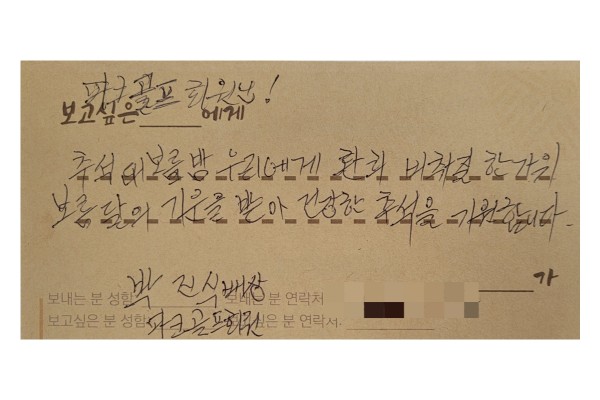 파크골프 회원님!
보고싶은 에게
추석 이보름밤 우리에게 환희 비춰줄 한가위
보름달의 기운을 받아 건강한 추석을 기원합니다.
가
보내는 분 성함 박진식 보내는 분 연락처
보고싶은 분 성함 파크골프회원 싶은 분 연락처.